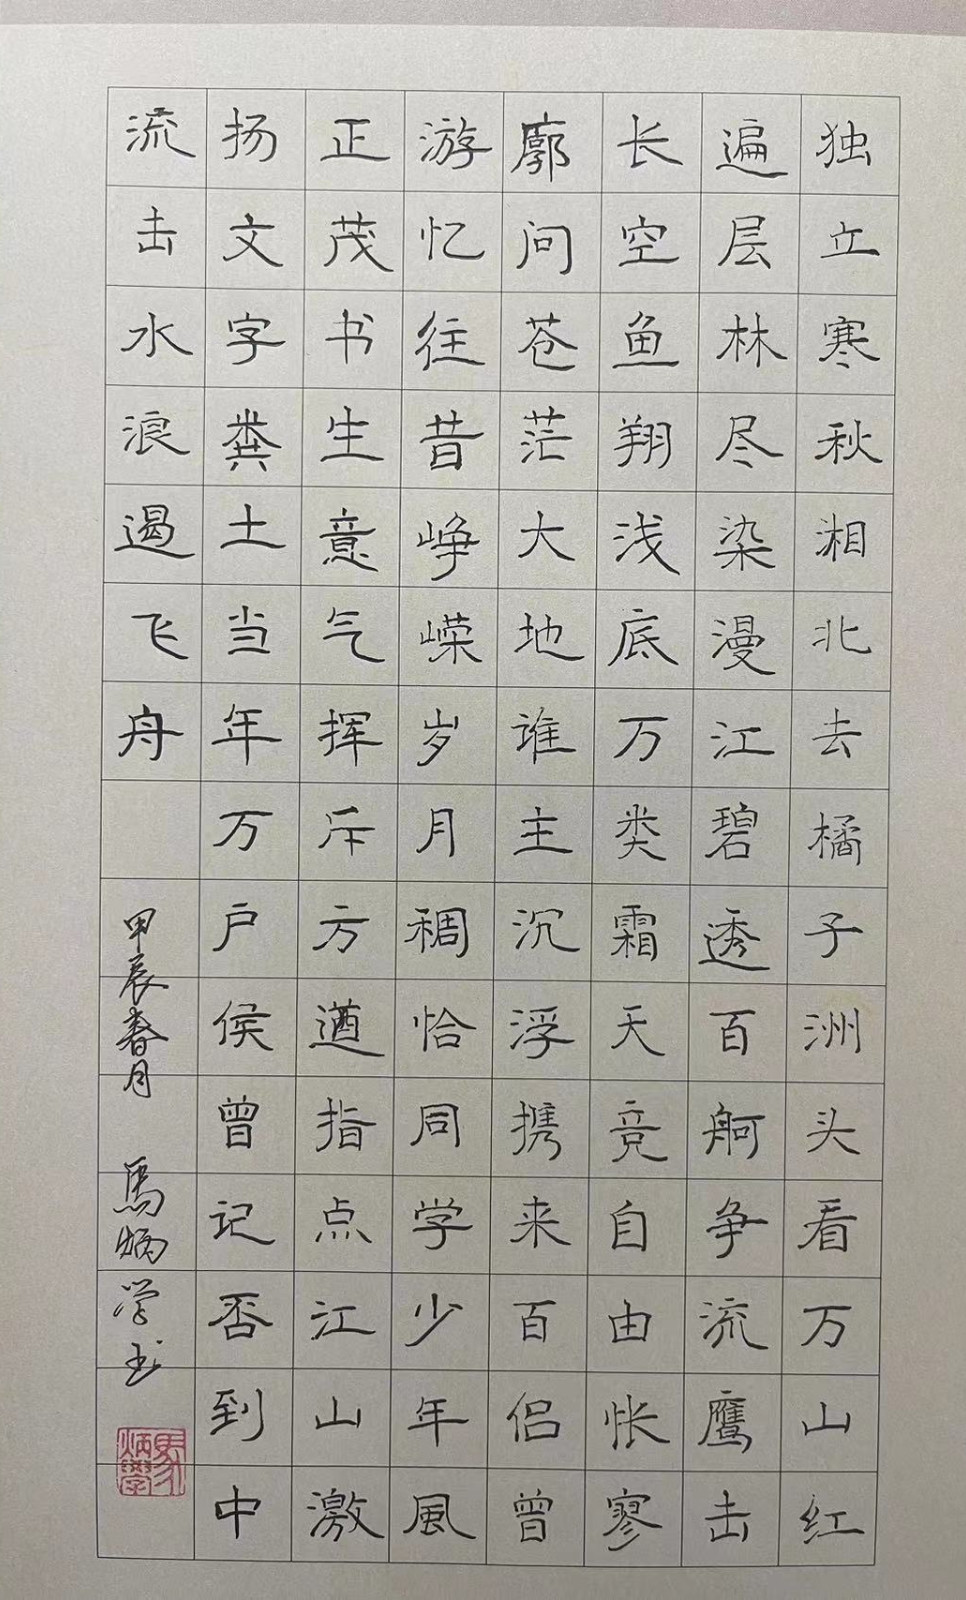 独立寒秋湘北去橘子洲头看万山红
遍层林尽染漫江碧透百舸争流鹰击
长空鱼翔浅底万类霜天竞自由怅寥
廓问苍茫大地谁主沉浮携来百侣曾
游忆往昔峥嵘岁月稠恰同学少年風
正茂书生意气挥斥方遒指点江山激
扬文字粪土当年万户侯曾记否到中
流击水浪遏飞舟
甲辰春月 馬炳学书
馬炳學